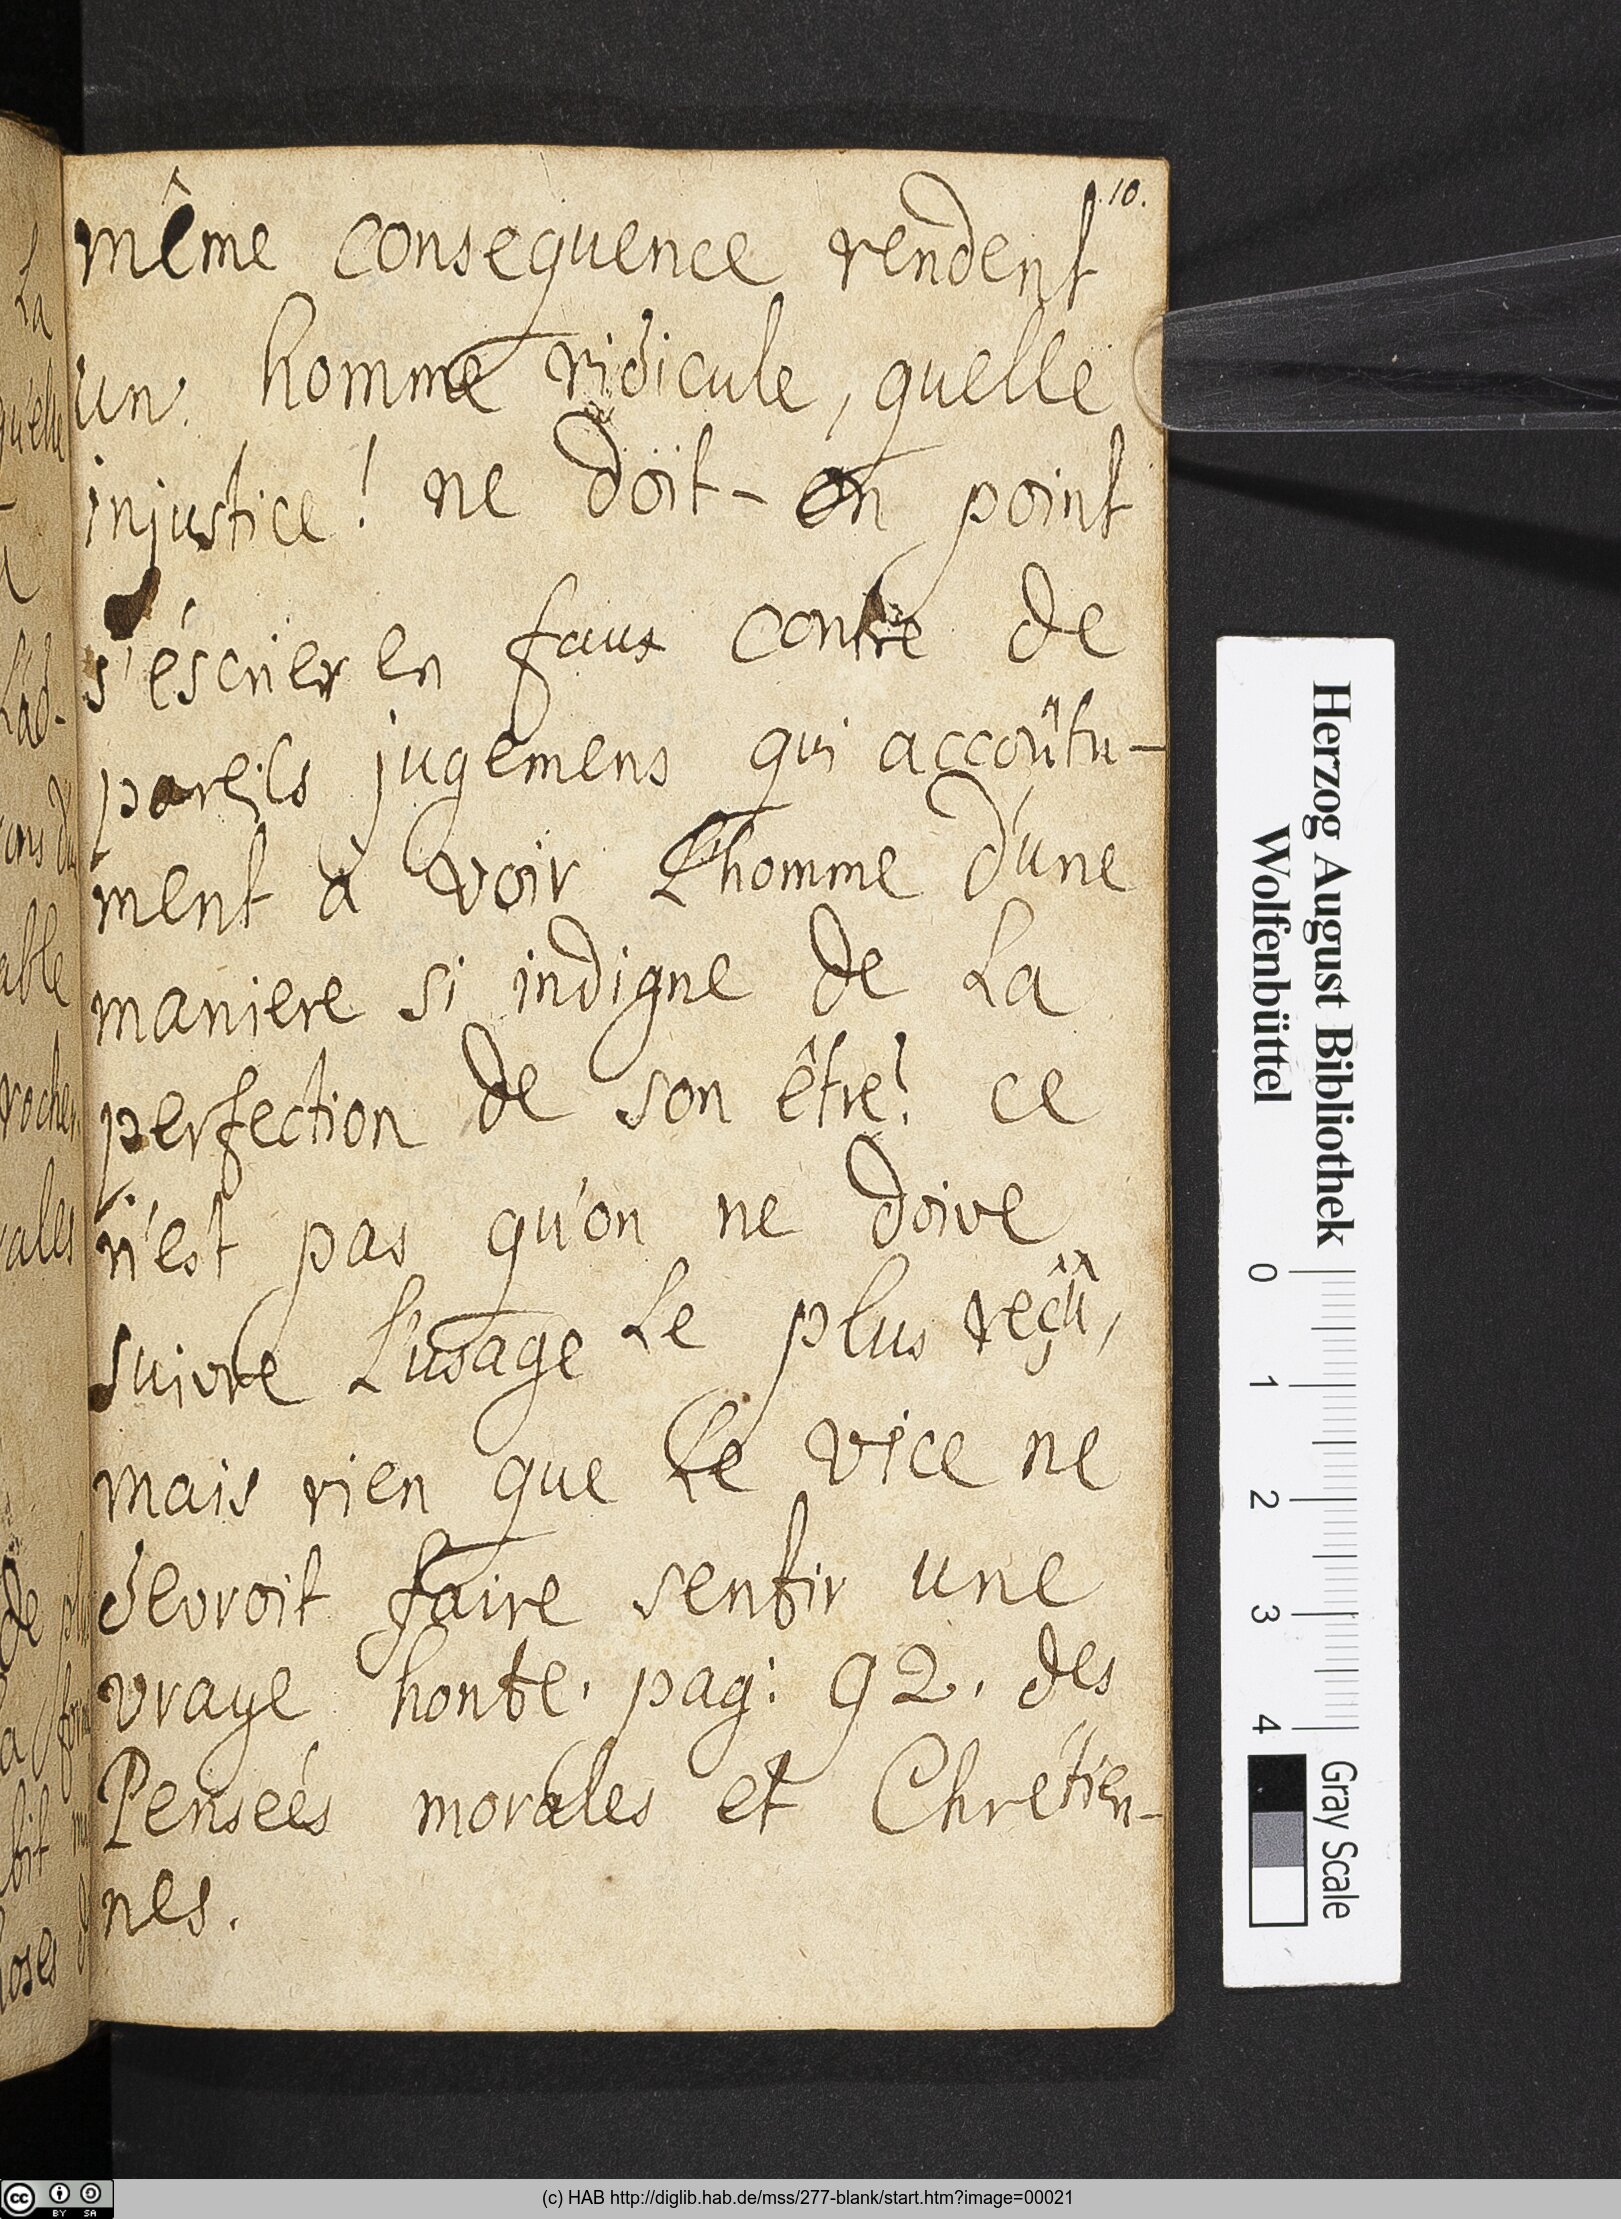 10.
même consequence rendent
un homme ridicule, quelle
injustice! ne doit-on point
s'éscrier en faux contre de
pareils jugemens qui accoûtu-
ment à voir L'homme d'une
maniere si indigne de La
perfection de son être! ce
n'est pas qu'on ne doive
suivre L'usage Le plus reçû,
mais rien que Le vice ne
devroit faire sentir une
vraye honte. pag: 92. des
Penseés morales et Chrétien-
nes.
La
qu'elle
L'ad-
able
rocher
rales
de
hoses
Herzog August Bibliothek
Wolfenbüttel
0 1 2 3 4
Gray Scale
BY SA
(c) HAB http://diglib.hab.de/mss/277-blank/start.htm?image=00021